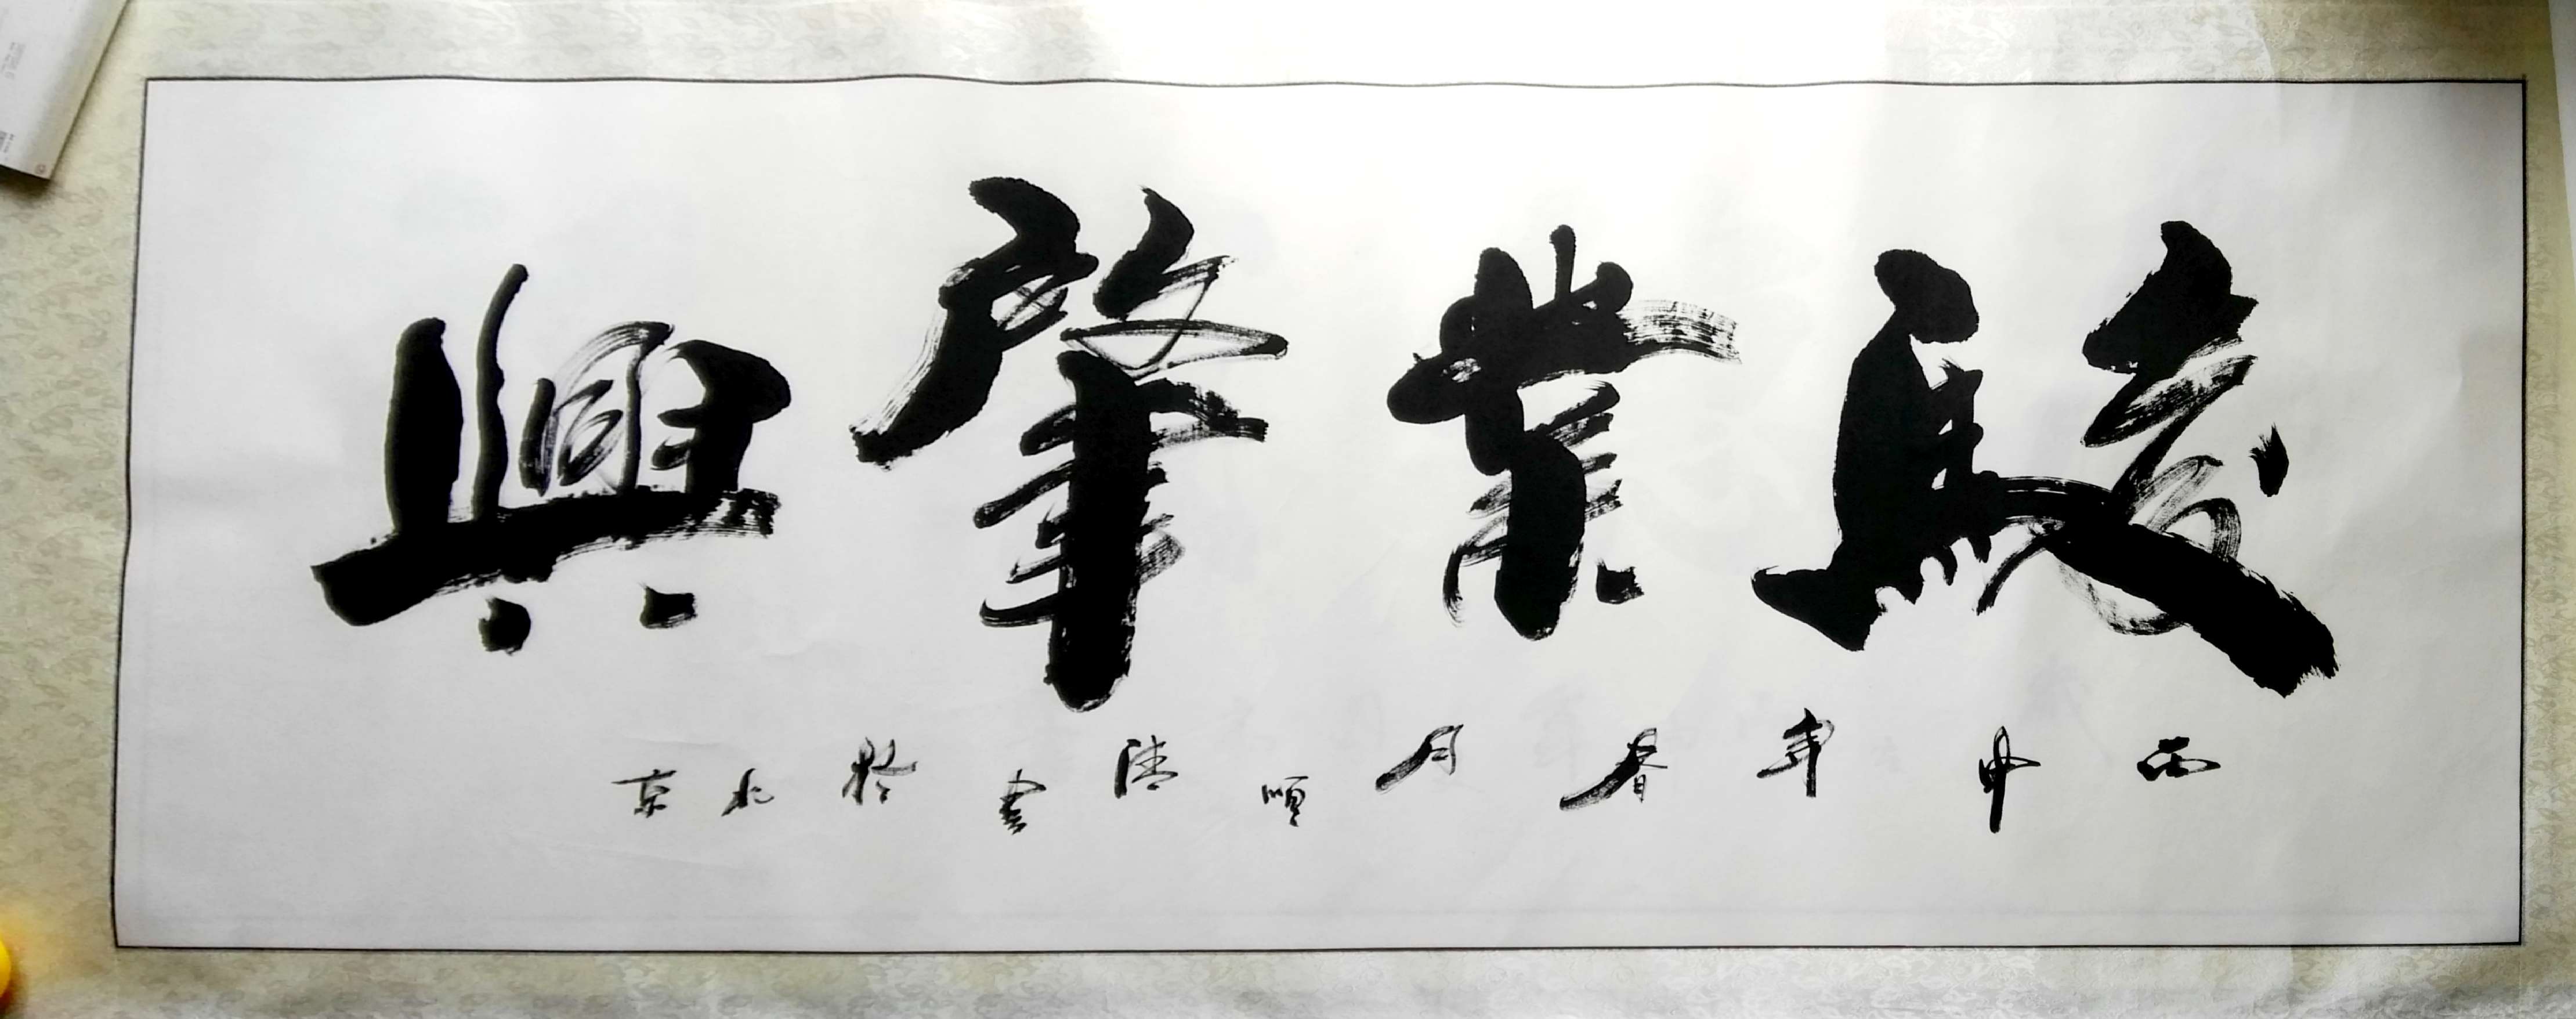 駿業肇興
丙申年春月順清書於北京